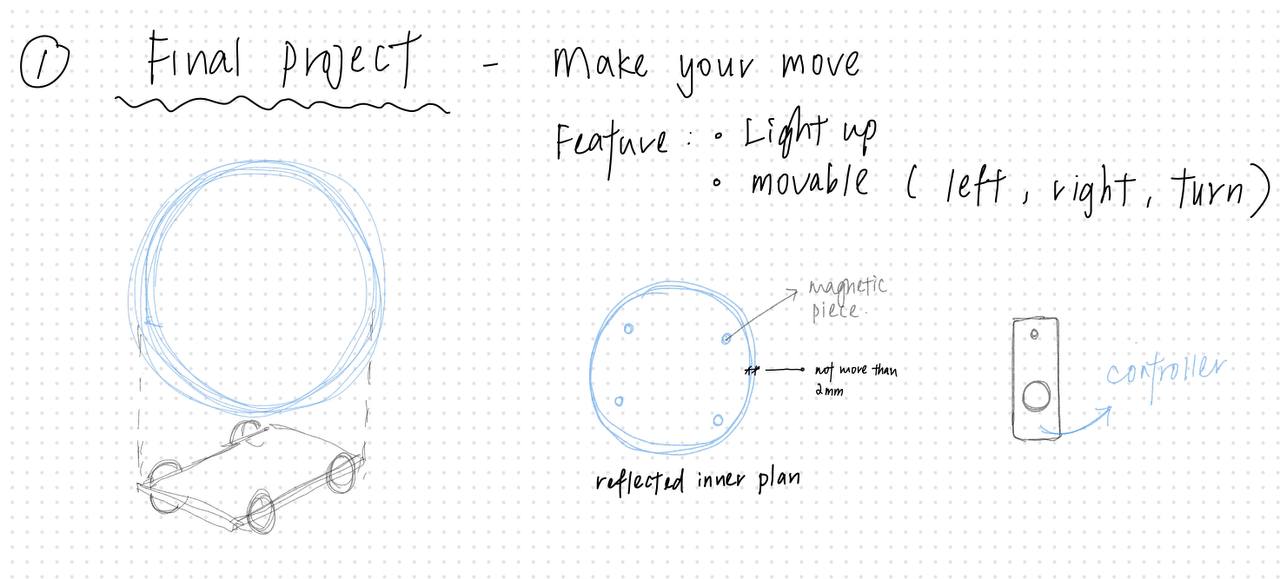 ① Final project - Make your move
Feature : • Light up
• movable ( left, right, turn)
magnetic
piece.
not more than
2mm
controller
reflected inner plan